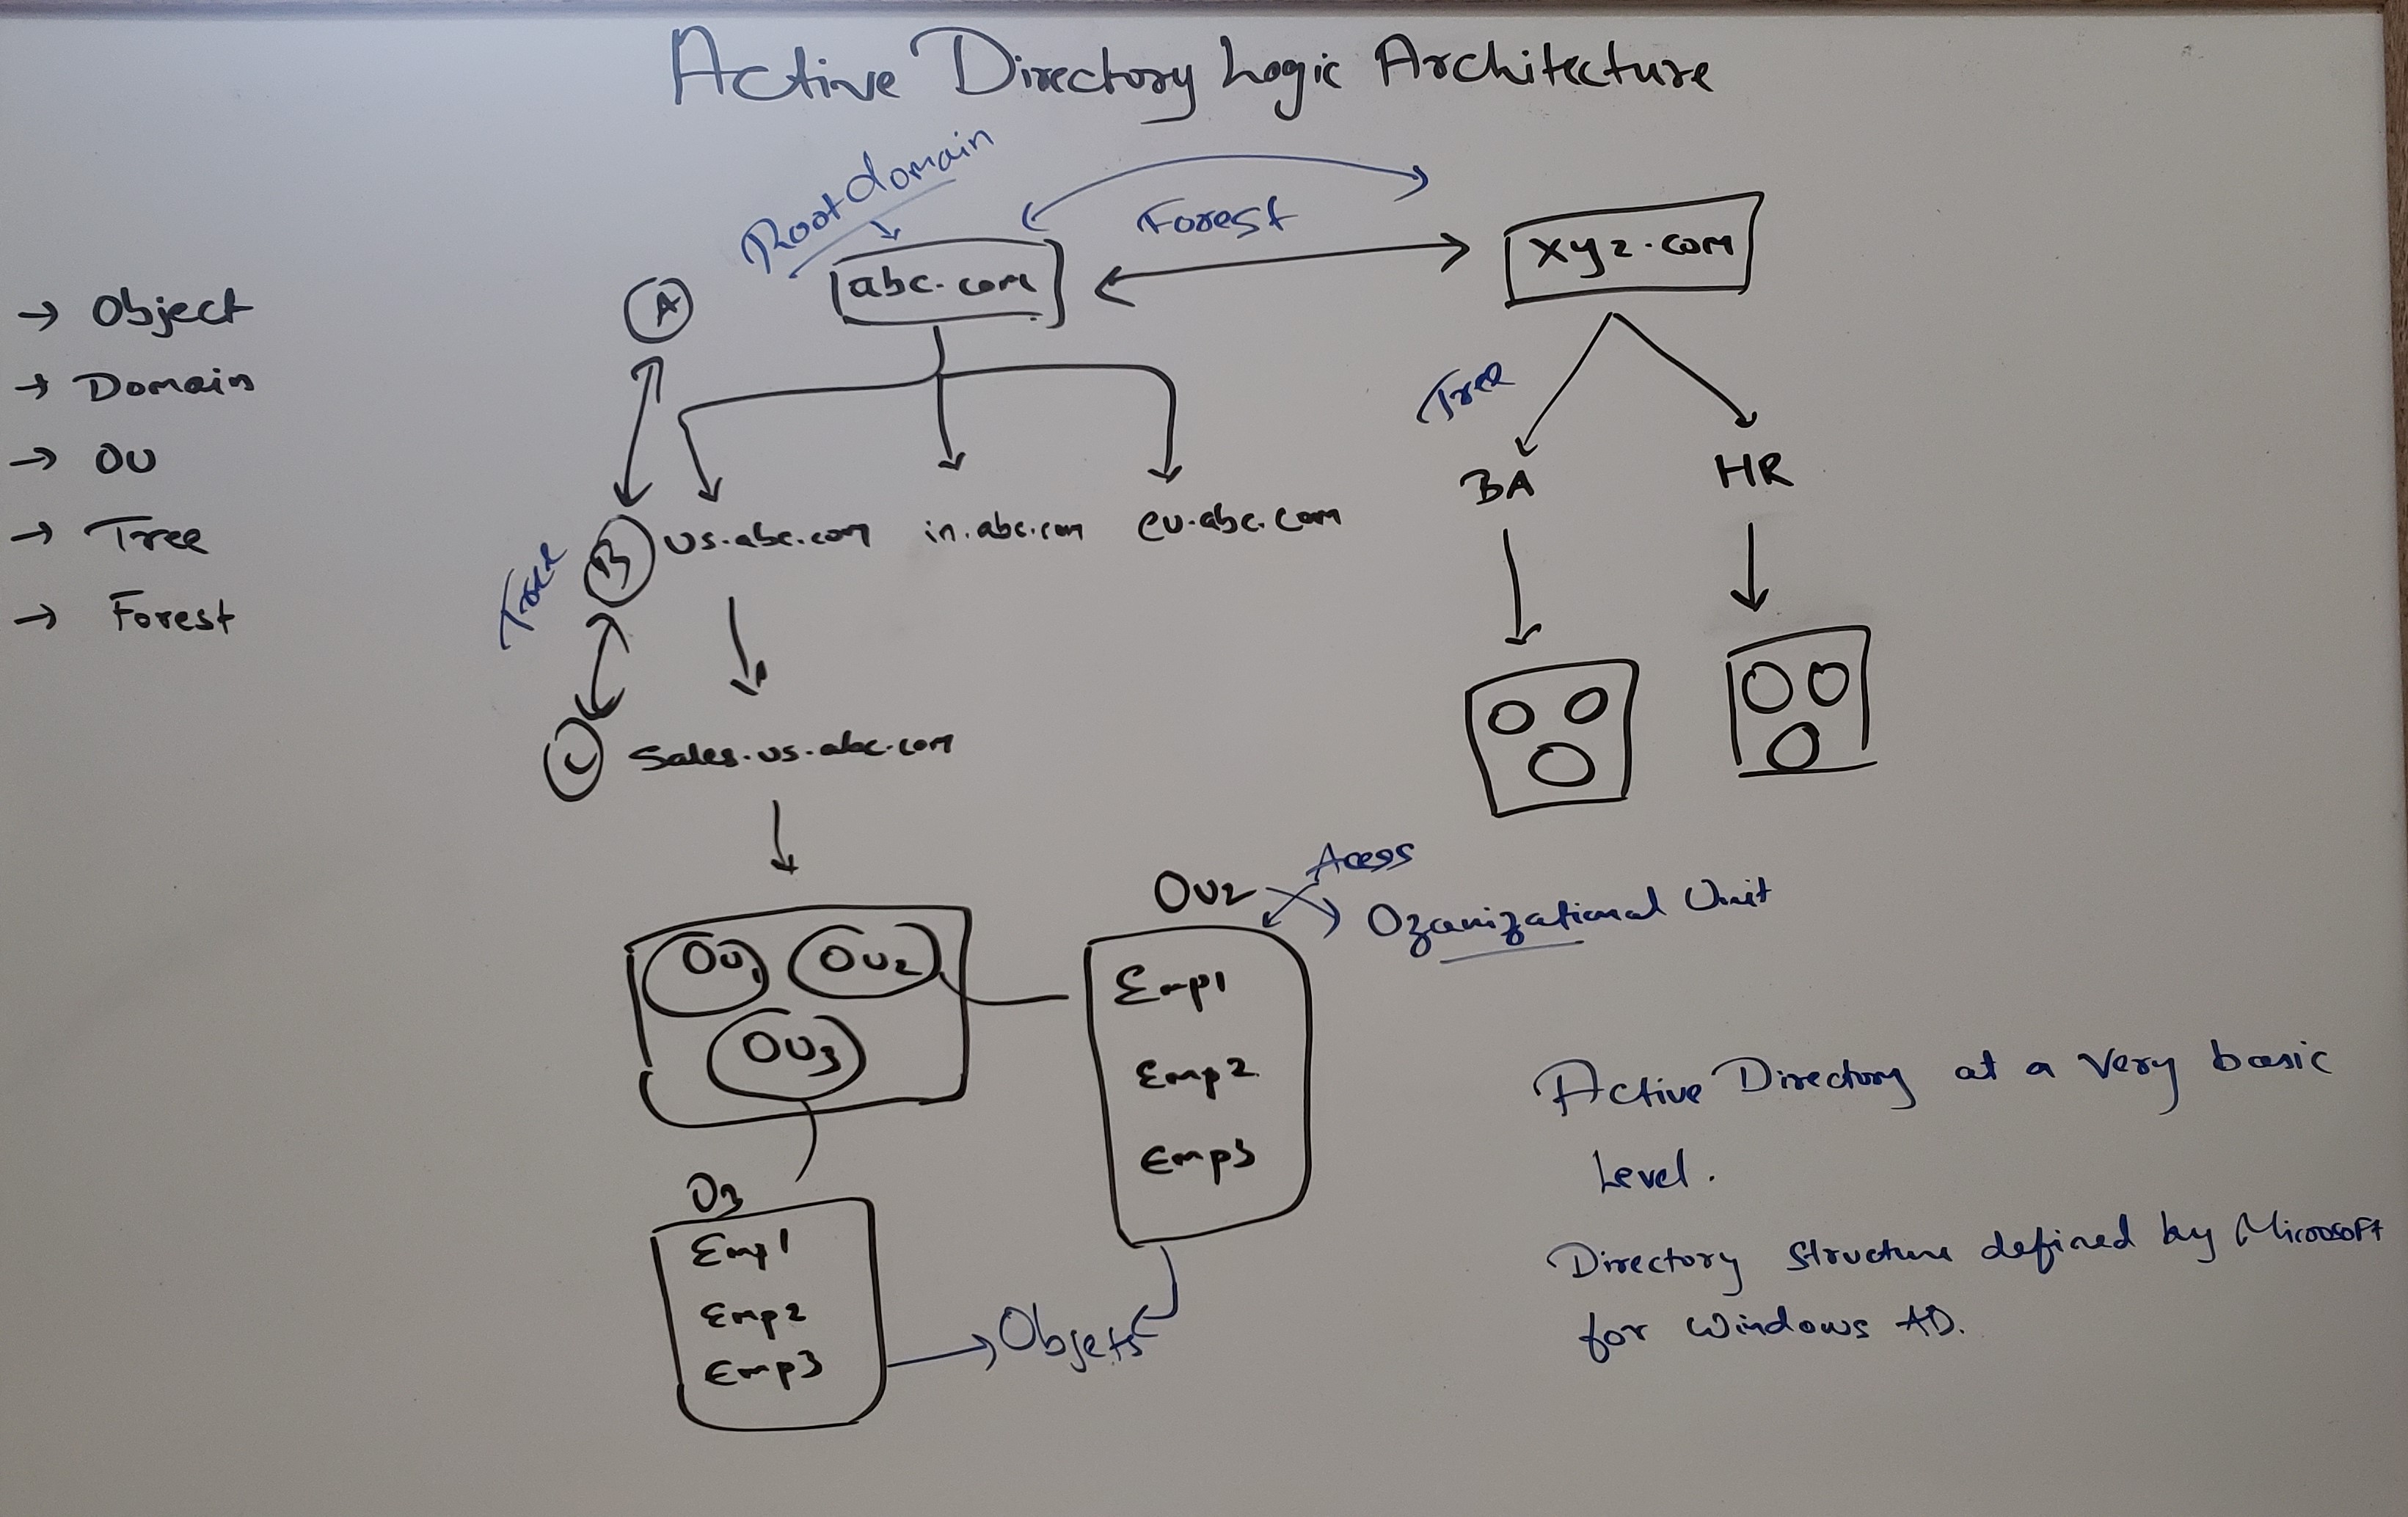 Active Directory Logic Architecture
Root domain
Forest
abc.com
xyz.com
A
→ Object
→ Domain
→ OU
→ Tree
→ Forest
Tree
BA
HR
Tree
B
us.abc.com
in.abc.com
eu.abc.com
C
Sales.us.abc.com
OU1
OU2
OU3
OU2
Acess
Ozanizational Unit
Emp1
Emp2
Emp3
O3
Emp1
Emp2
Emp3
Objets
Active Directory at a very basic
Level.
Directory Structure defined by Microsoft
for Windows AD.